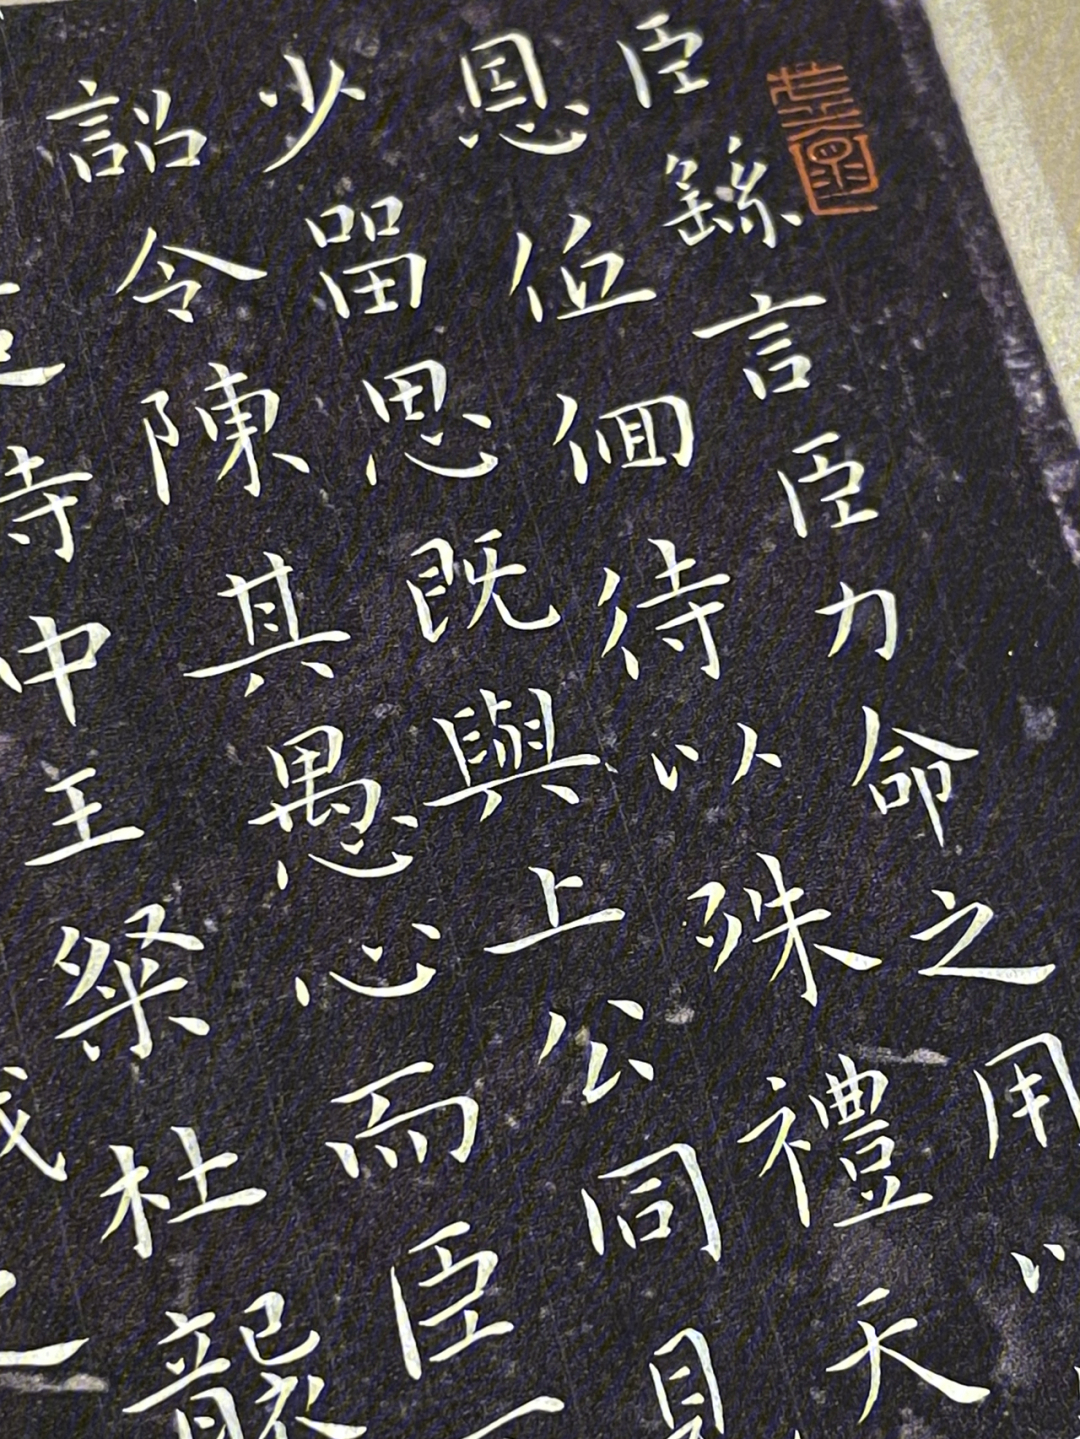 臣繇言臣力命之用
恩低佪待以殊禮天
少留思既與上公同見
詔令陳其愚心而臣
中王粲杜襲